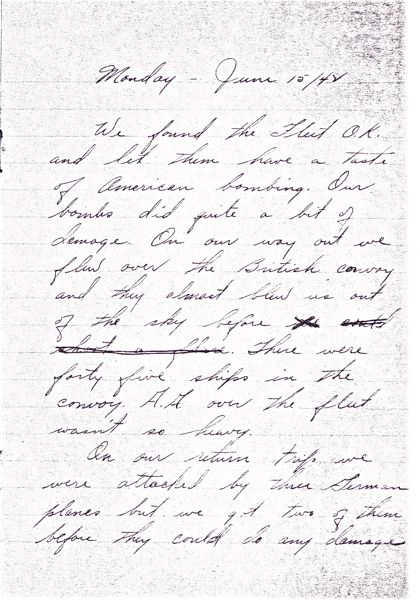 Monday - June 15/42
We found the Fleet O.K.
and let them have a taste
of American bombing. Our
bombs did quite a bit of
damage. On our way out we
flew over the British convoy
and they almost blew us out
of the sky before we could
shoot a flare. There were
forty five ships in the
convoy. A.A over the fleet
wasn't so heavy.
On our return trip we
were attacked by three German
planes but we got two of them
before they could do any damage